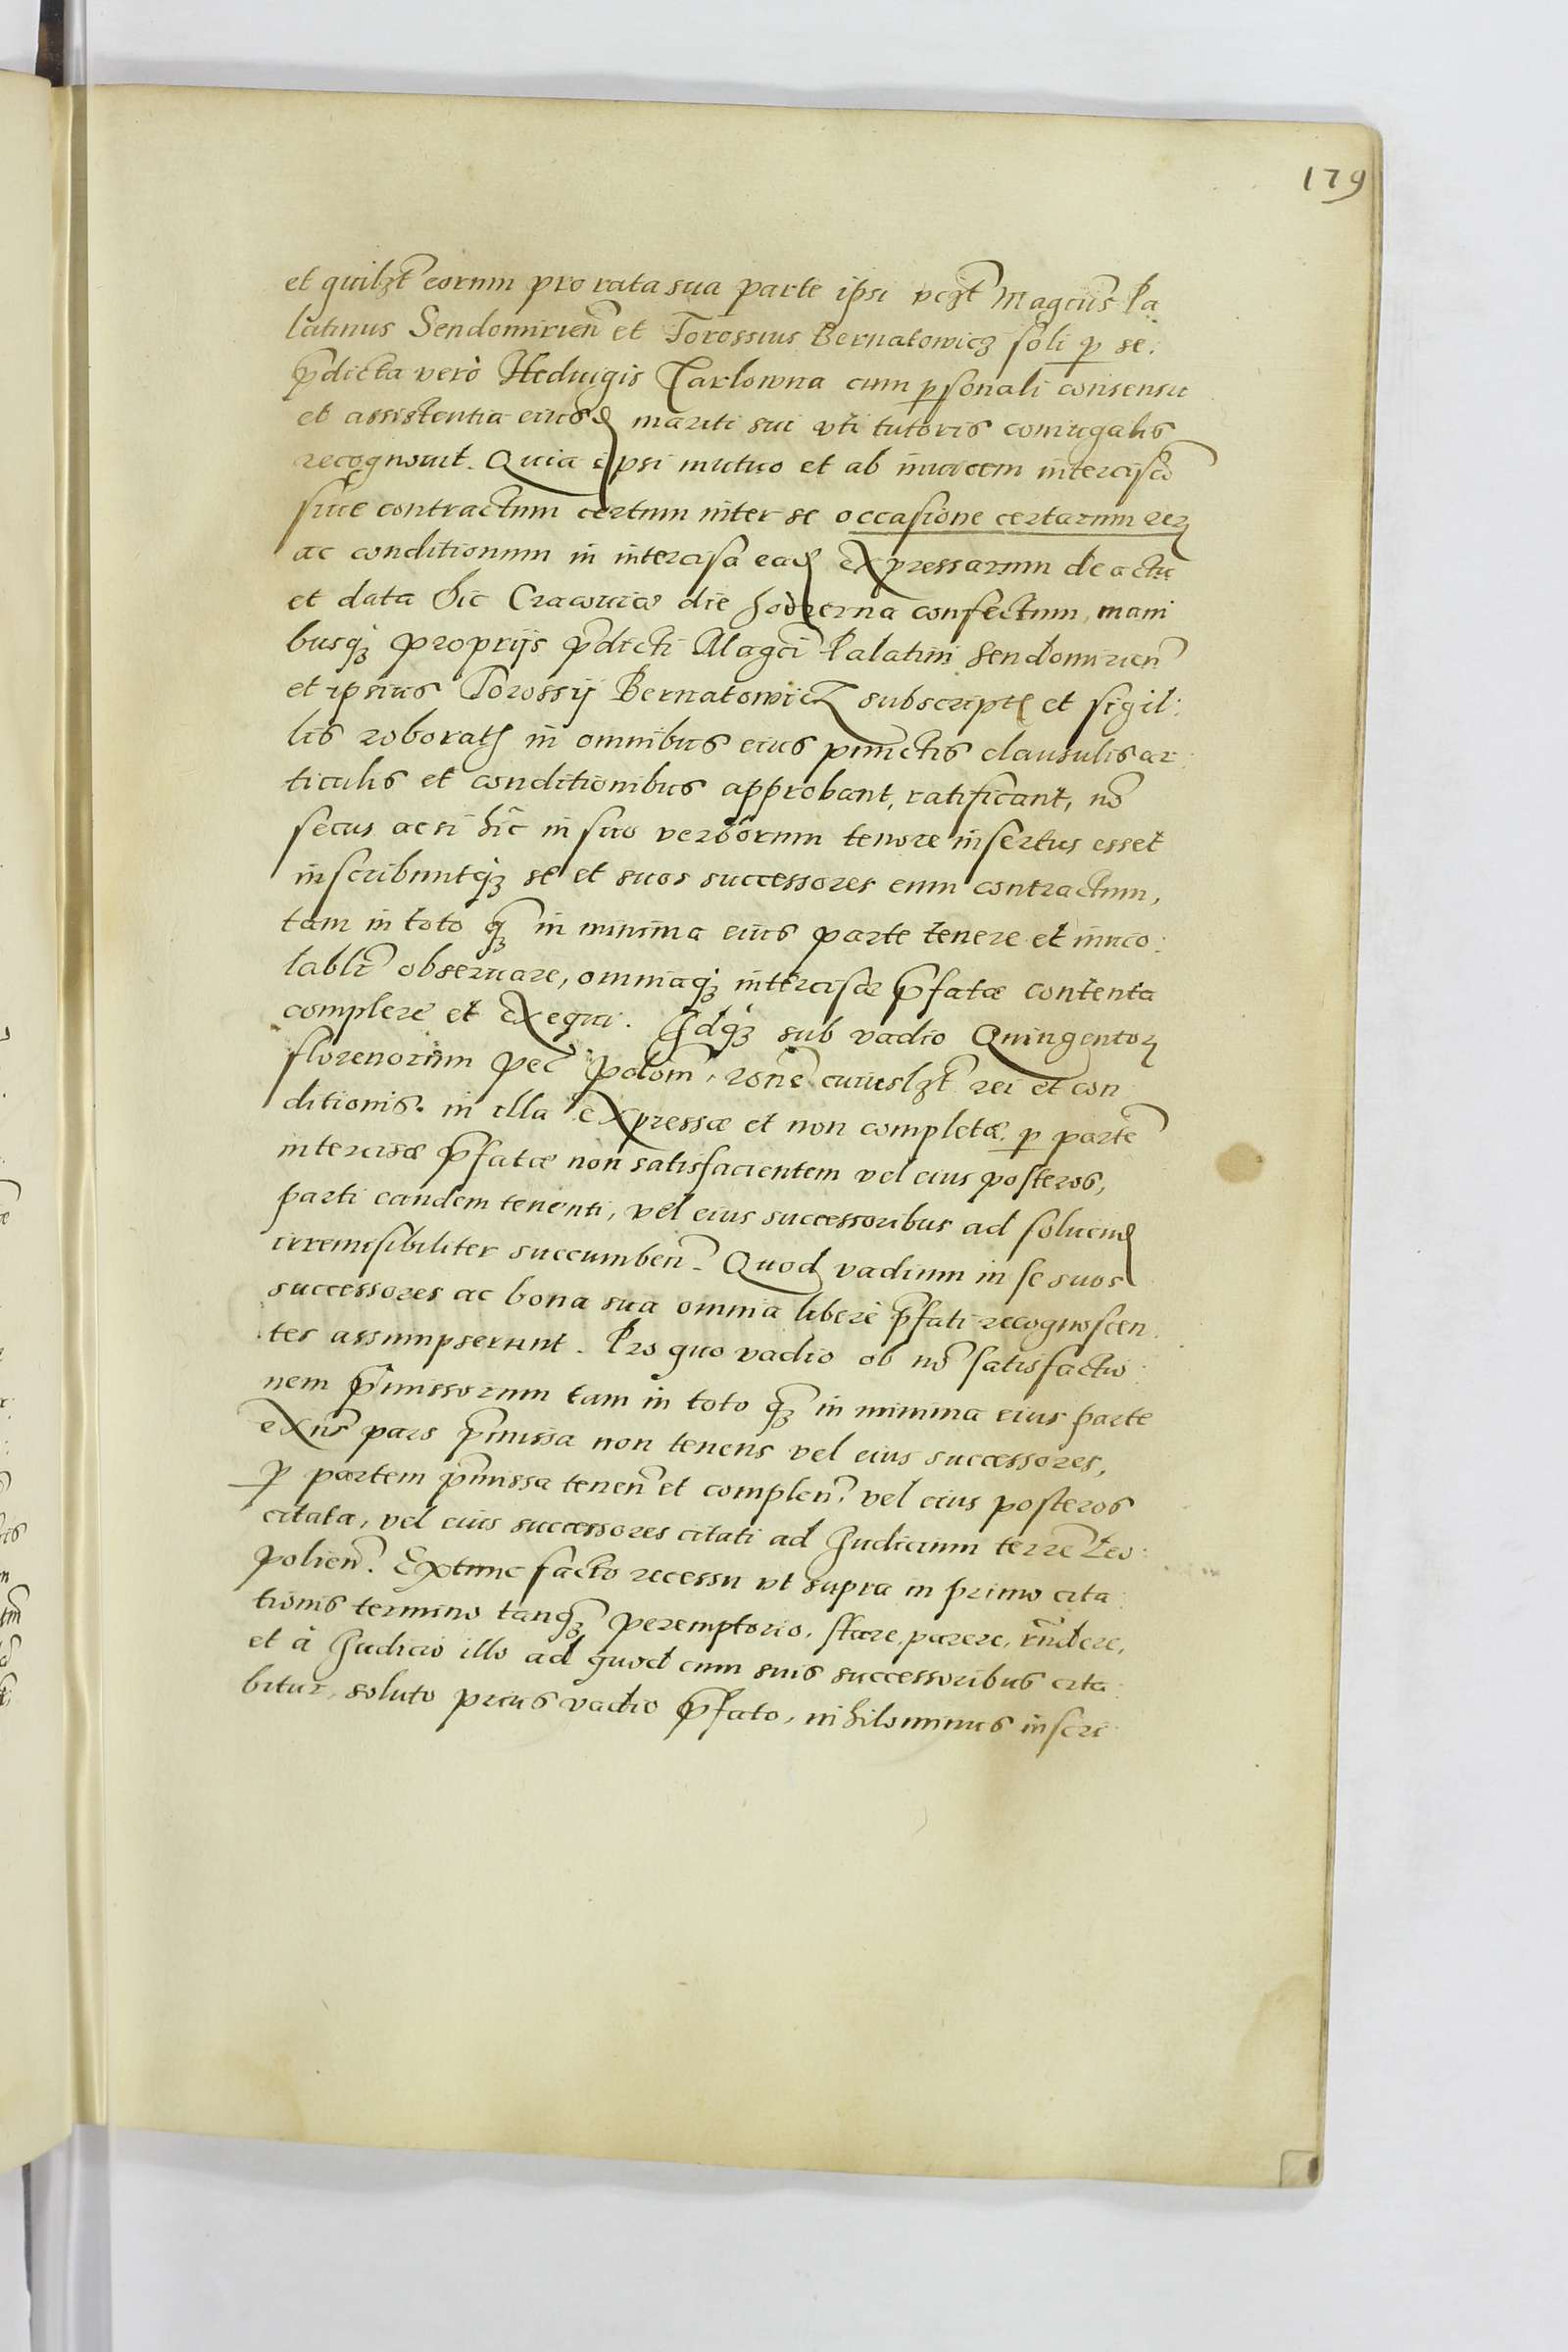 179
et quilzt eorum pro rata sua parte ipsi vczt Magcus Pa
latinus Sendomirien et Torossius Bernatowicz soli p se.
pdicta vero Heduigis Carlowna cum psonali consensu
et assistentia eiusd mariti sui vti tutoris coniugalis
recognouit. Quia ipsi mutuo et ab inuicem intercisã
siue contractum certum inter se occasione certarum rerz
ac conditionum in intercisa ead expressarum de actu
et data hic Cracouiæ die hodierna confectum, mani
busq3 proprijs pdicti Magci Palatini Sendomirien
et ipsius Torossij Bernatowicz subscript et sigil:
lis roborat in omnibus eius punctis clausulis ar:
ticulis et conditionibus approbant, ratificant, nõ
secus ac si hic in suo verborum tenore insertus esset
inscribuntq3 se et suos successores eum contractum,
tam in toto q3 in minima eius parte tenere et inuio:
labli obseruare, omniaq3 intercisæ pfatæ contenta
complere et exequi. Idq3 sub vadio Quingentorz
florenorum pec polon, rone cuiuslzt rei et con
ditionis in illa expressæ et non completæ p parte
intercisæ pfatæ non satisfacientem vel eius posteros,
parti eandem tenenti, vel eius successoribus ad soluend
irremisibiliter succumben. Quod vadium in se suos
successores ac bona sua omnia libere pfati recognoscen
tes assumpserunt. Pro quo vadio ob nõ satisfactio:
nem pmissorum tam in toto q3 in minima eius parte
exns pars pmissa non tenens vel eius successores,
p partem pmissa tenen et complen. vel eius posteros
citata, vel eius successores citati ad Iudicium terre Leo:
polien. Extunc facto recessu vt supra in primo cita:
tionis termino tanq3 peremptorio, stare, parere, rndere,
et à Iudicio illo ad quod cum suis successoribus cita:
bitur, soluto prius vadio pfato, nihilominus inscri